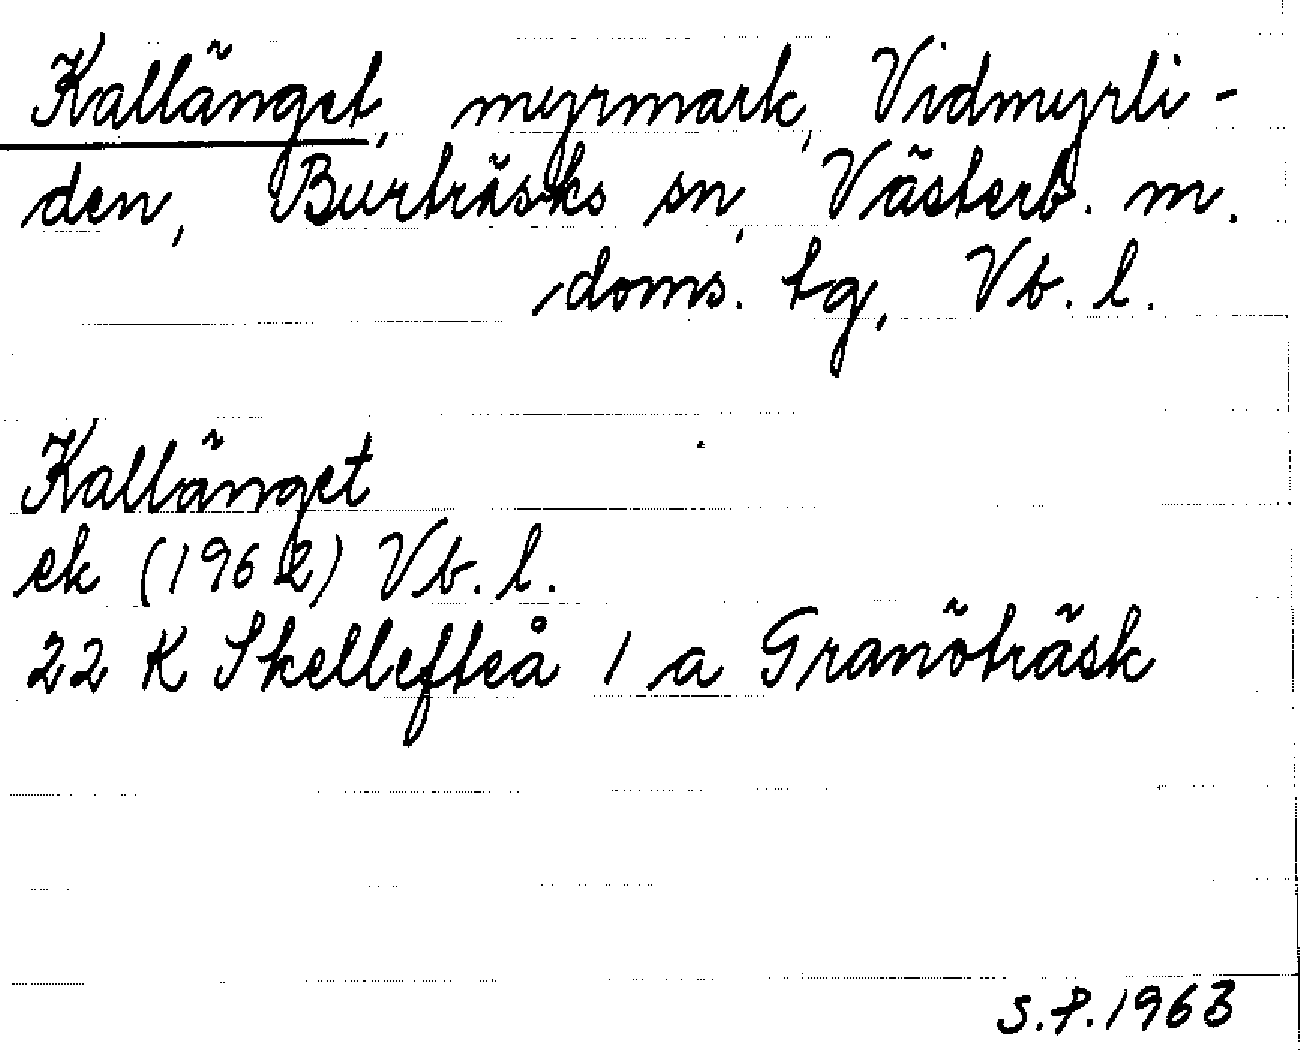 Kallänget, myrmark, Vidmyrli-
den, Burträsks sn, Västerb. m.
doms. tg, Vb. l.
Kallänget
ek (1962) Vb. l.
22 K Skellefteå 1 a Granöträsk
S.P. 1963